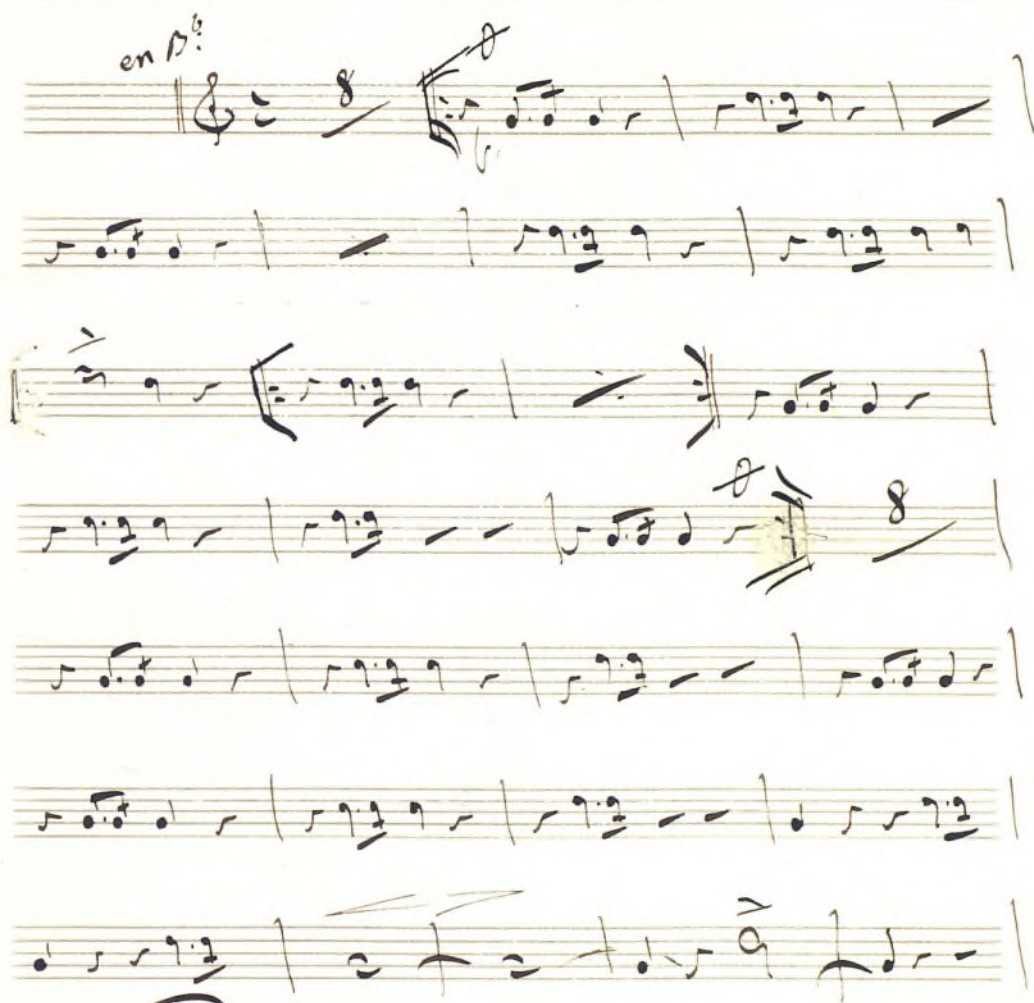 en Bb
8
8